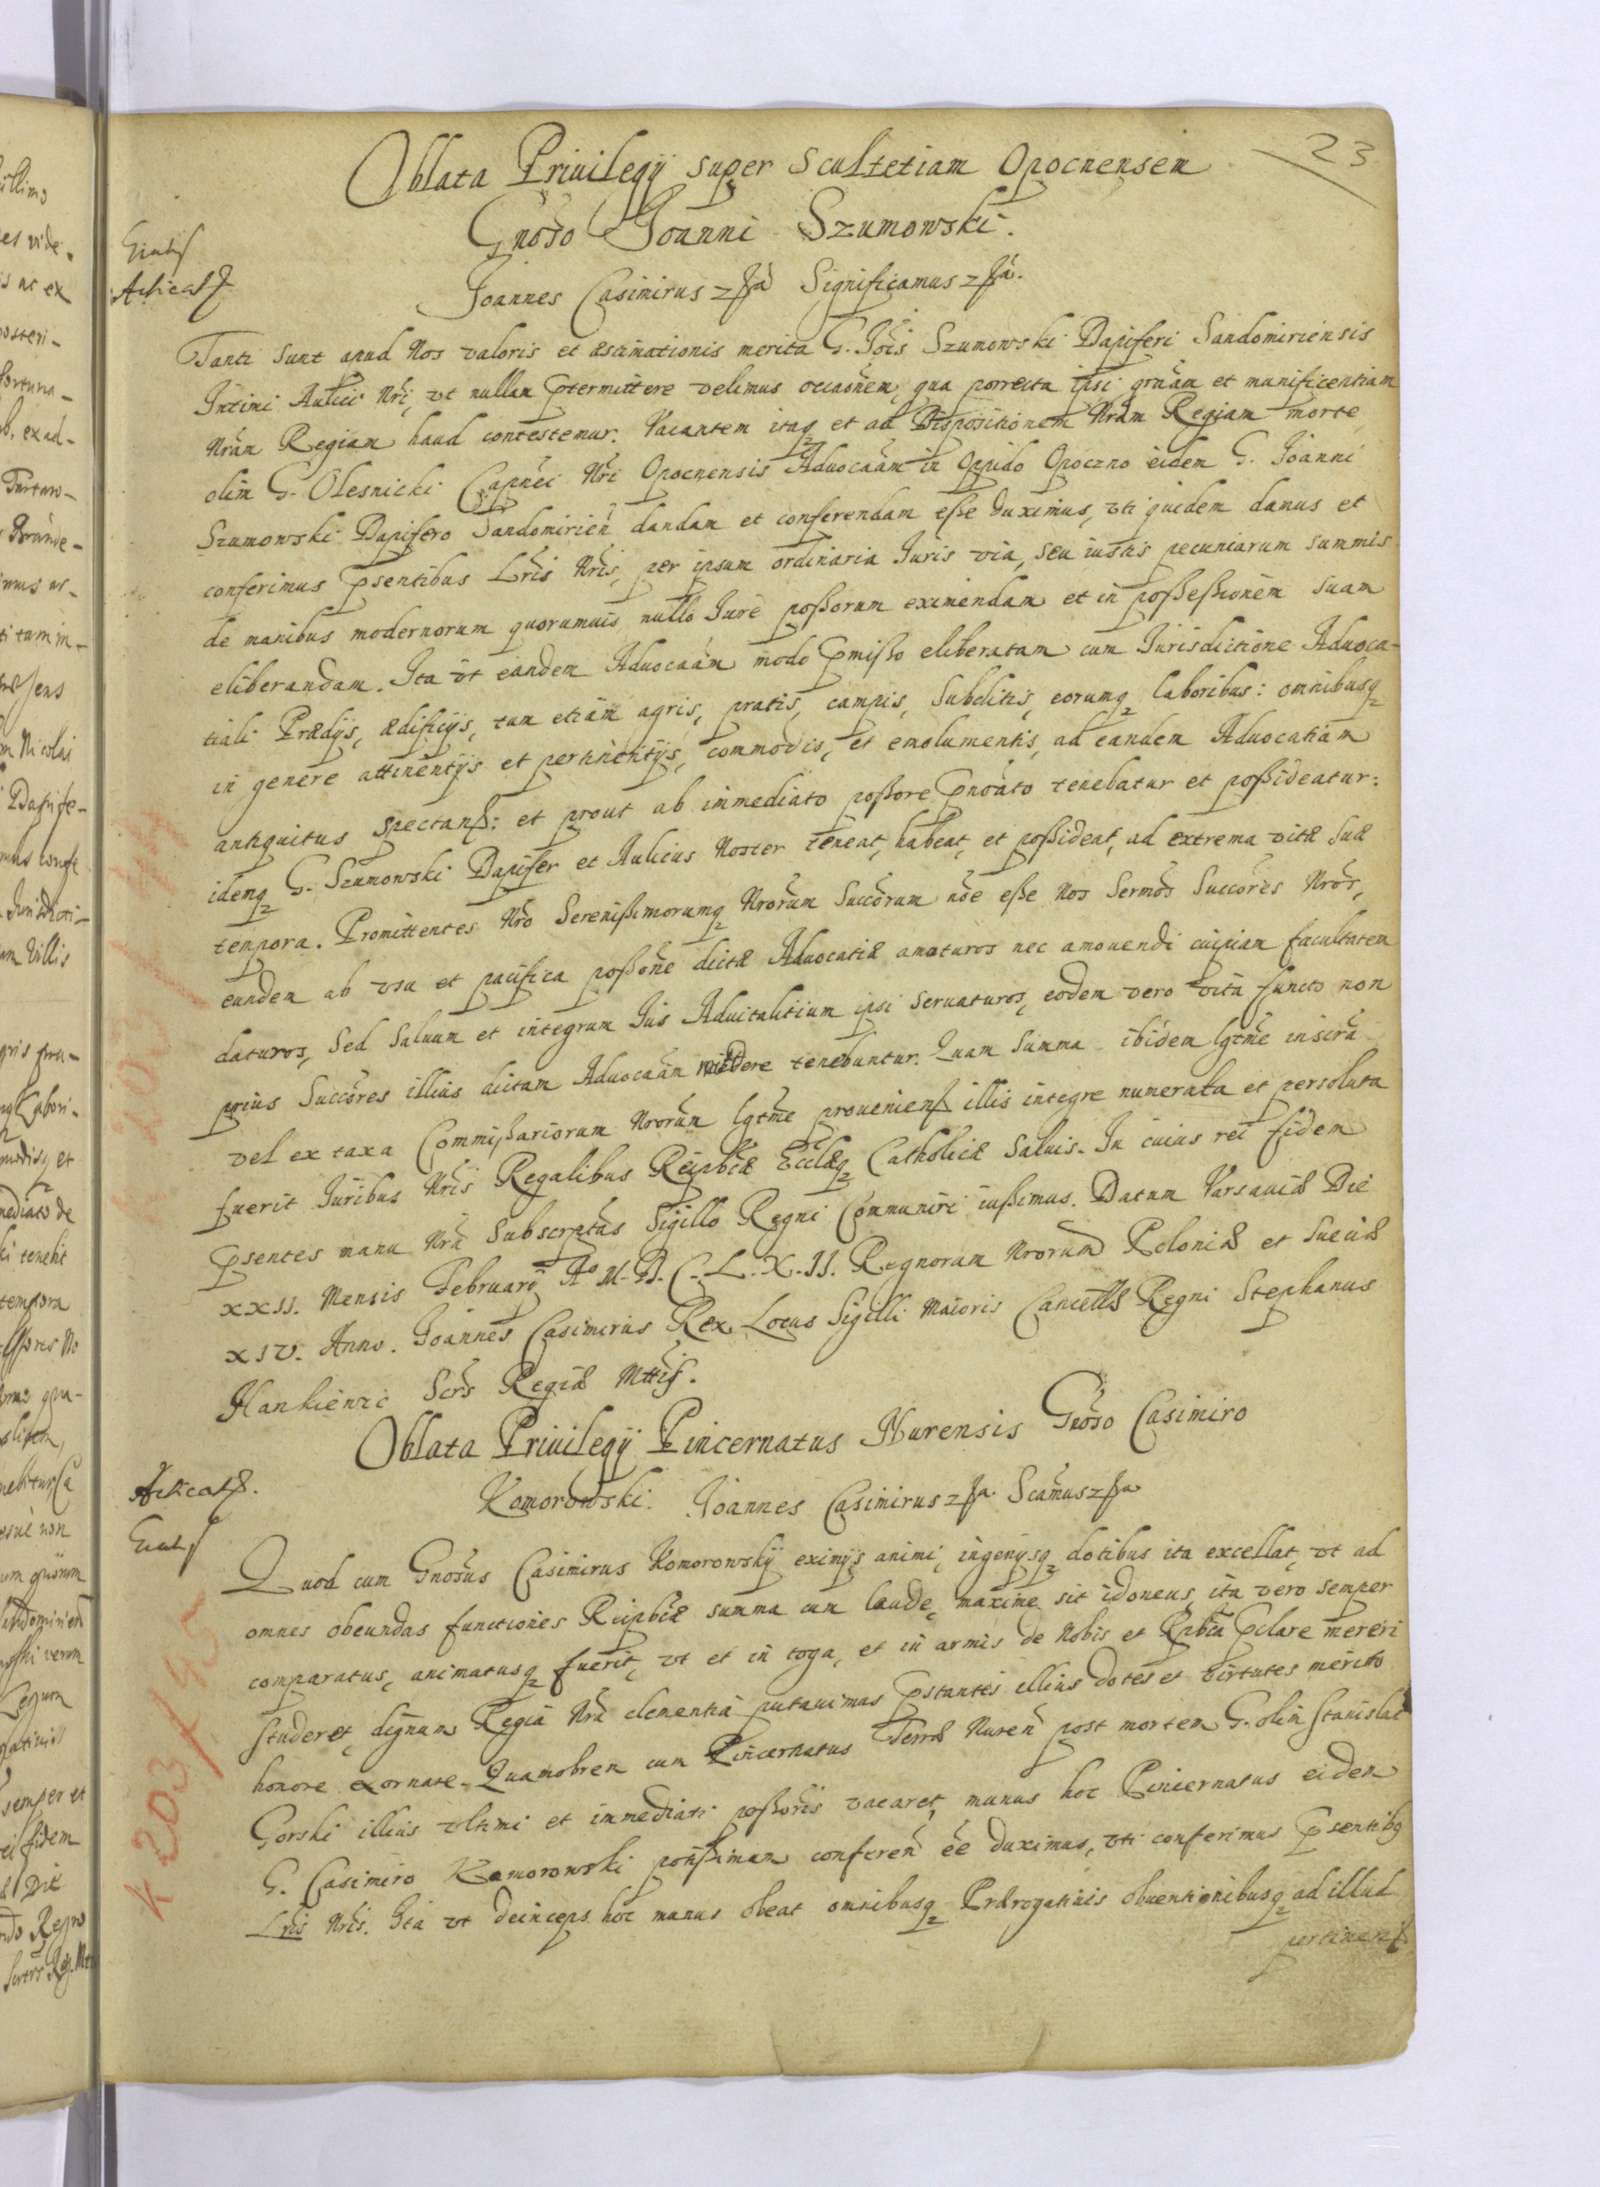 23
Oblata Priuilegÿ super Scultetiam Opocnensem
Gnoso Joanni Szumowski.
Joannes Casimirus Significamus
Tanti sunt apud Nos valoris et æstimationis merita G. Jois Szumowski Dapiferi Sandomiriensis
Intimi Aulici Nri, vt nullam ptermittere velimus occaonem, qua porrecta ipsi grãam et munificentiam
Nram Regiam haud contestemur. Vacantem itaq et ad Dispositionem Nram Regiam morte
olim G. Olesnicki Capnei Nri Opocnensis Aduocaam in Oppido Opoczno eidem G. Joanni
Szumowski Dapifero Sandomirien dandam et conferendam esse duximus, vti quidem damus et
conferimus psentibus Lris Nris, per ipsum ordinaria Juris via, seu iustis pecuniarum summis
de manibus modernorum quorumuis nullo Jure possorum eximendam et in possessionem suam
eliberandam. Ita vt eandem Aduocaam modo pmisso eliberatam cum Jurisdictione Aduoca-
tiali Prædÿs, ædificÿs, tum etiam agris, pratis, campis, subditis, eorumq laboribus: omnibusq
in genere attinentÿs et pertinentÿs, commodis, et emolumentis, ad eandem Aduocatiam
antiquitus spectan: et prout ab immediato possore pnoato tenebatur et possideatur:
idemq G. Szumowski Dapifer et Aulicus Noster teneat, habeat, et possideat, ad extrema vitæ suæ
tempora. Promittentes Nro Serenissimorumq Nrorum Succorum noe esse Nos Sermos Succores Nros,
eundem ab vsu et pacifica possone dictæ Aduocatiæ amoturos nec amouendi cuipiam facultatem
daturos, Sed saluum et integrum Jus Aduitalitium ipsi seruaturos, eodem vero vita functo non
prius Succores illius dictam Aduocaam cedere tenebuntur. Quam summa ibidem lgtme inscra
vel ex taxa Commissariorum Nrorum lgtme prouenien illis integre numerata et persoluta
fuerit Juribus Nris Regalibus Reipblcæ Ecclæq Catholicæ Saluis. In cuius rei fidem
psentes manu Nra subscriptas Sigillo Regni Communiri iussimus. Datum Varsauiæ Die
XXII. Mensis Februarÿ Ao M.D.C.L.X.II. Regnorum Nrorum Poloniæ et Sueciæ
XIV. Anno. Joannes Casimirus Rex Locus Sigilli Maioris Cancellæ Regni Stephanus
Hankiewic Scrs Regiæ Mttis.
Oblata Priuilegÿ Pincernatus Nurensis Gnoso Casimiro
Komorowski. Joannes Casimirus Scamus
Quod cum Gnosus Casimirus Komorowskÿ eximÿs animi, ingenÿsq dotibus ita excellat, vt ad
omnes obeundas functiones Reipblcæ summa cum laude, maxime sit idoneus, ita vero semper
comparatus, animatusq fuerit, vt et in toga, et in armis de Nobis et Rpbca pclare mereri
studeret, dignum Regia Nra clementia putauimus pstantes illius dotes et virtutes merito
honore exornare. Quamobrem cum Pincernatus Terræ Nuren post mortem G. olim Stanislai
Gorski illius vltimi et immediati possoris vacaret, munus hoc Pincernatus eidem
G. Casimiro Komorowski potissimum conferen ee duximus, vti conferimus psentibq
Lris Nris. Ita vt deinceps hoc munus obeat omnibusq Prærogatiuis obuentionibusq ad illud
pertinen